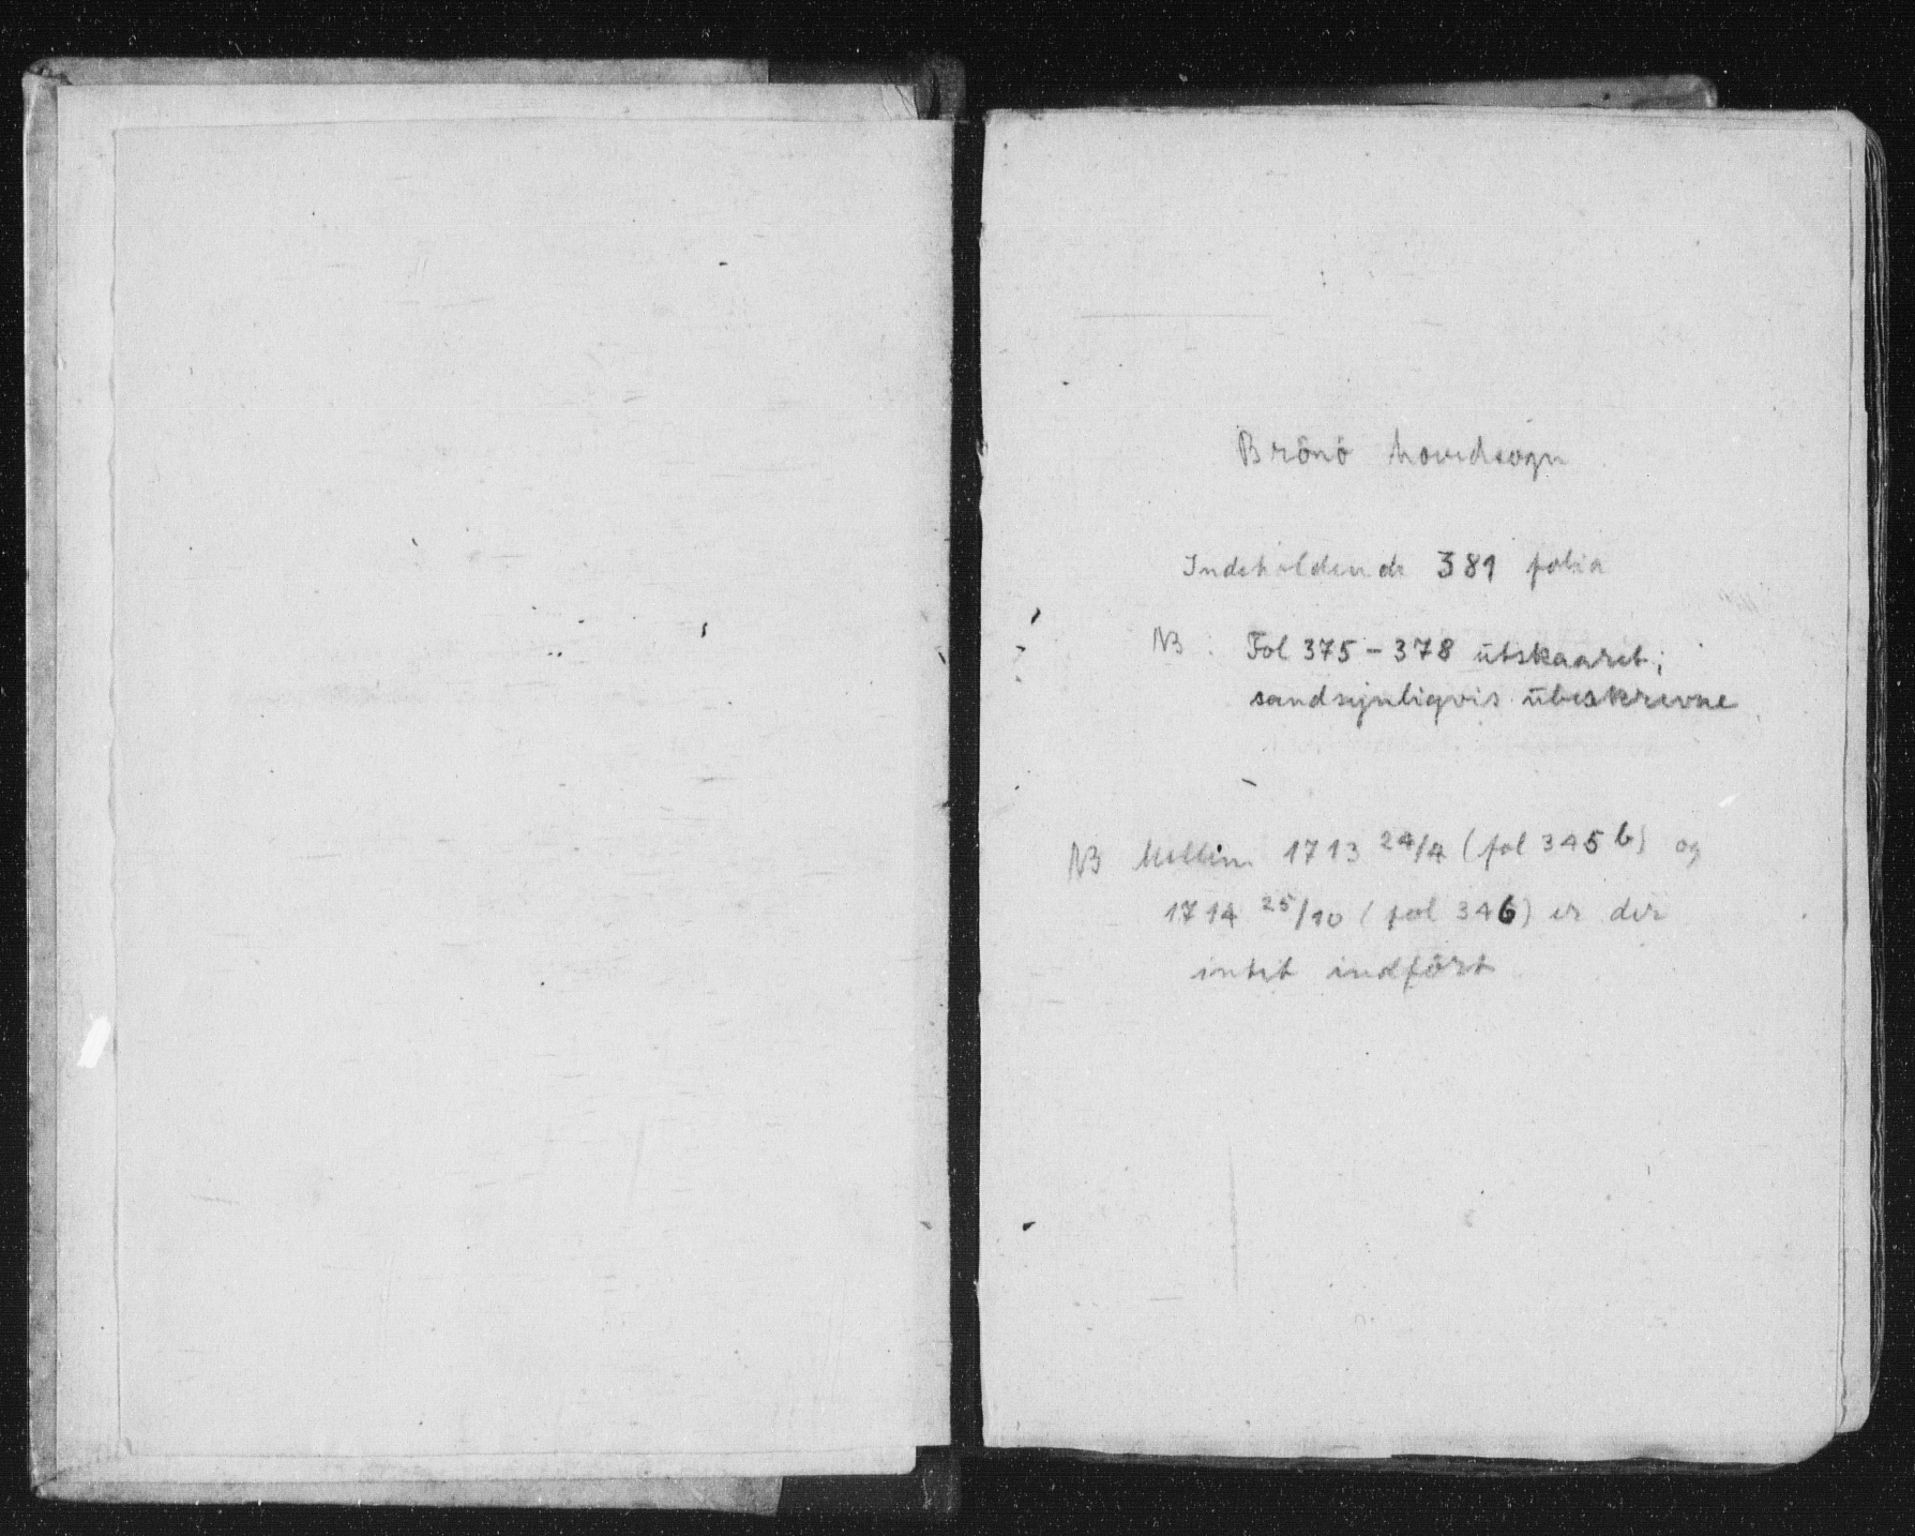 Brönö hovedsogn
Indeholdende 381 folia
NB: Fol 375 - 378 utskaaret;
sandsynligvis ubeskrevne
NB Mellem 1713 24/4 (fol 345 b) og
1714 25/10 (fol 346) er der
intet indfört